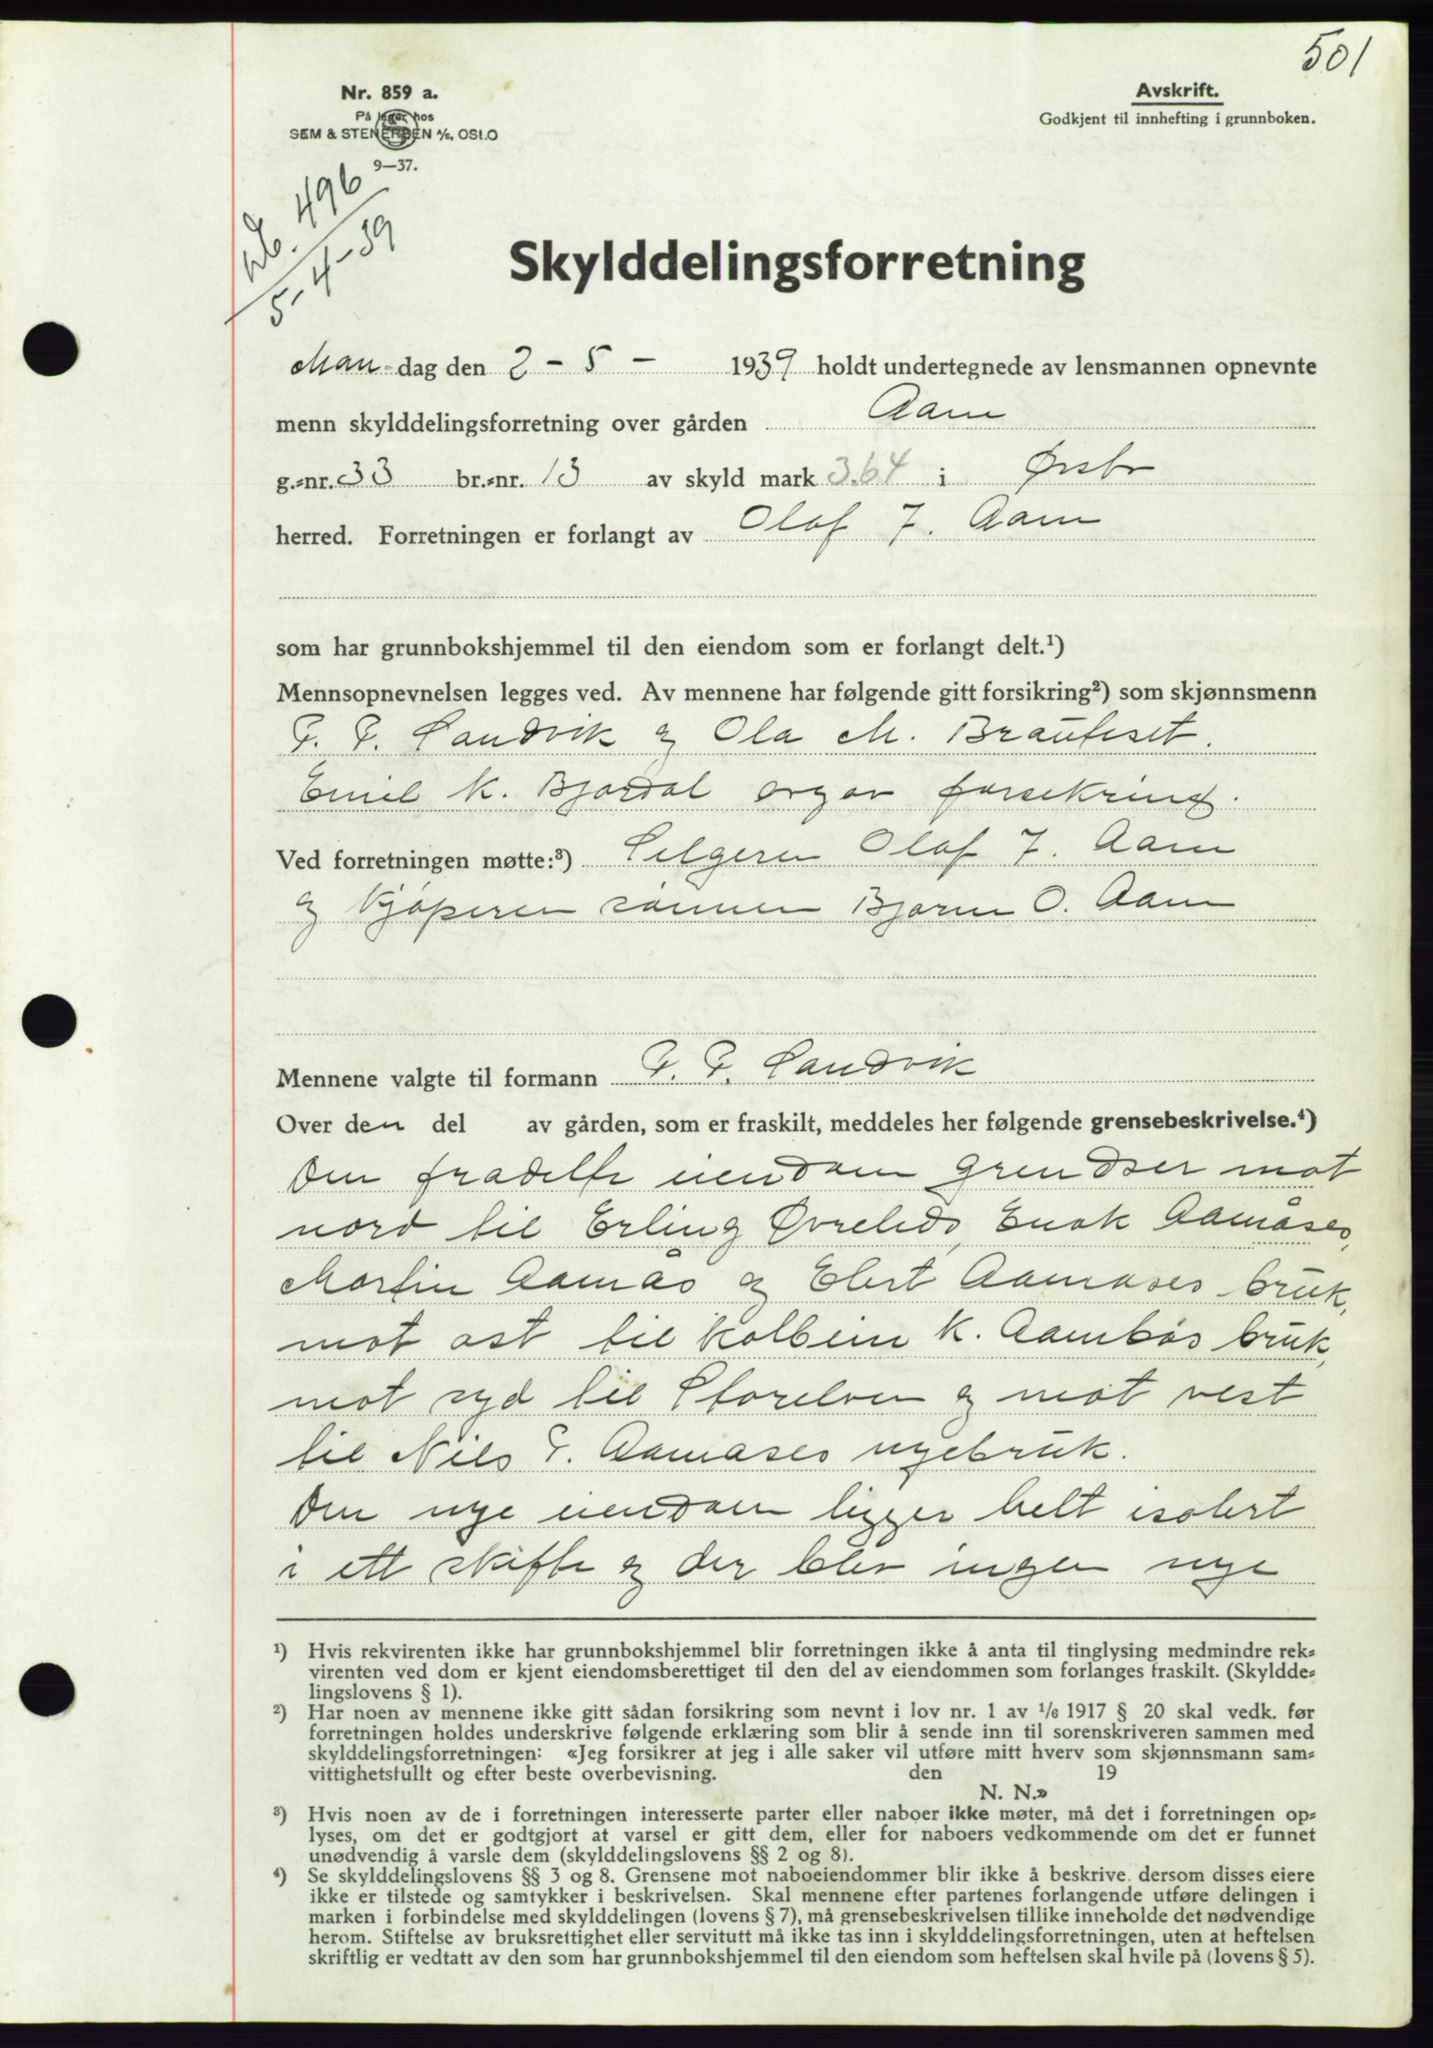 501
Nr. 859 a.
På lager hos
SEM & STENERSEN A/S, OSLO
9—37.
Avskrift.
Godkjent til innhefting i grunnboken.
nb. 496
5-4-39
Skylddelingsforretning
Man-dag den 2 - 5 - 1939 holdt undertegnede av lensmannen opnevnte
menn skylddelingsforretning over gården Aam
g.-nr. 33 br.-nr. 13 av skyld mark 3.64 i Ørsta
herred. Forretningen er forlangt av Olaf J. Aam
som har grunnbokshjemmel til den eiendom som er forlangt delt.¹)
Mennsopnevnelsen legges ved. Av mennene har følgende gitt forsikring²) som skjønnsmenn
P. P. Sandvik og Ola M. Brauteset.
Emil K. Bjordal avgav forsekring.
Ved forretningen møtte:³) Selgeren Olaf J. Aam
og kjøperen sønnen Bjarne O. Aam
Mennene valgte til formann P. P. Sandvik
Over den del av gården, som er fraskilt, meddeles her følgende grensebeskrivelse.⁴)
Den fradelte eiendom grendser mot
nord til Erling Øvrelids, Enok Aamåses,
Martin Aamås og Elert Aamases bruk,
mot ost til Kolbein K. Aambøs bruk,
mot syd til Storelven og mot vest
til Nils P. Aamases nyebruk.
Den nye eiendom ligger helt isolert
i ett skifte og der blev ingen nye
¹) Hvis rekvirenten ikke har grunnbokshjemmel blir forretningen ikke å anta til tinglysing medmindre rek-
virenten ved dom er kjent eiendomsberettiget til den del av eiendommen som forlanges fraskilt. (Skyldde-
lingslovens § 1).
²) Har noen av mennene ikke gitt sådan forsikring som nevnt i lov nr. 1 av 1/6 1917 § 20 skal vedk. før
forretningen holdes underskrive følgende erklæring som blir å sende inn til sorenskriveren sammen med
skylddelingsforretningen: «Jeg forsikrer at jeg i alle saker vil utføre mitt hverv som skjønnsmann sam-
vittighetsfullt og efter beste overbevisning. den 19
N. N.»
³) Hvis noen av de i forretningen interesserte parter eller naboer ikke møter, må det i forretningen op-
lyses, om det er godtgjort at varsel er gitt dem, eller for naboers vedkommende om det er funnet
unødvendig å varsle dem (skylddelingslovens §§ 2 og 8).
⁴) Se skylddelingslovens §§ 3 og 8. Grensene mot naboeiendommer blir ikke å beskrive, dersom disses eiere
ikke er tilstede og samtykker i beskrivelsen. Skal mennene efter partenes forlangende utføre delingen i
marken i forbindelse med skylddelingen (lovens § 7), må grensebeskrivelsen tillike inneholde det nødvendige
herom. Stiftelse av bruksrettighet eller servitutt må ikke tas inn i skylddelingsforretningen, uten at heftelsen
skriftlig er vedtatt av den som har grunnbokshjemmel til den eiendom som heftelsen skal hvile på (lovens § 5).